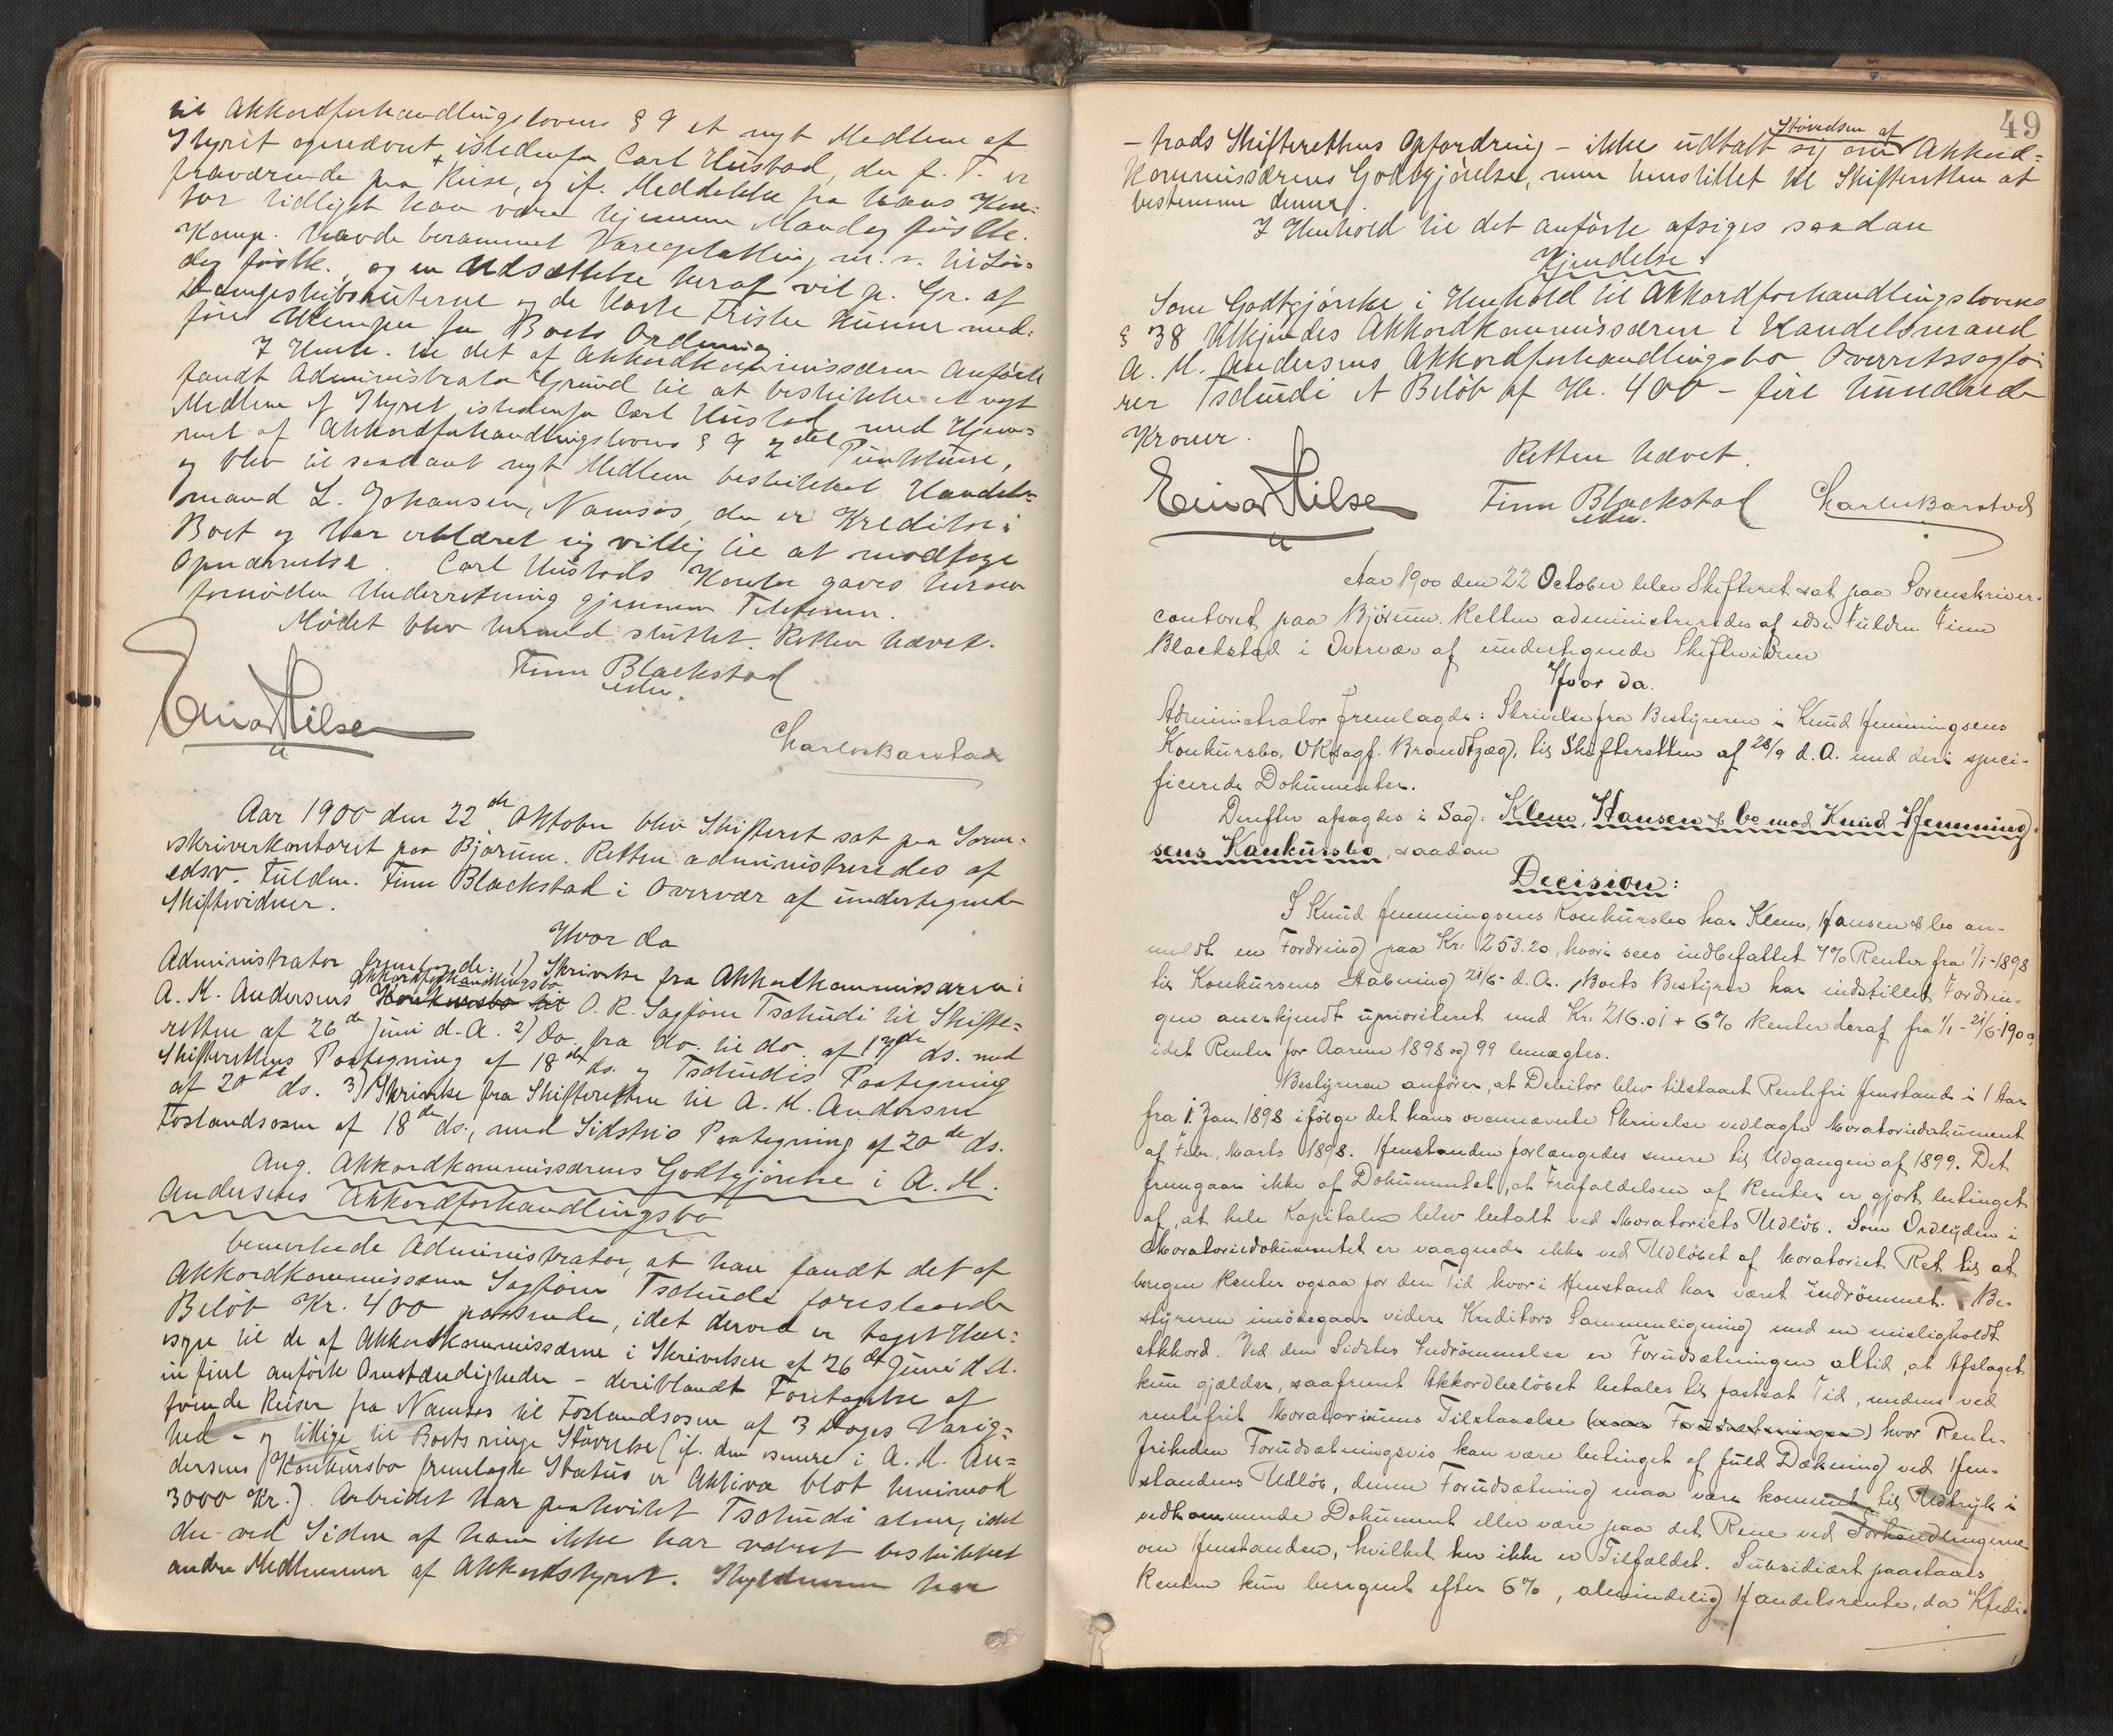 til Akkordforhandlingslovens § 9 et nyt Medlem af
Styret opnævnt istedenfor Carl Hustad, der f. T. er
fraværende paa Reise, og if. Meddelelse fra hans Kon-
tor tidligst kan være hjemme Mandag førstk.
Komp. havde berammet Varegetælling m. v. til Lør-
dag førstk., og en Udsættelse heraf vil p. Gr. af
Dampskibsruterne og de korte Frister kunne med-
føre Ulemper for Boets Ordning
I Henh. til det af Akkordkommissæren anførte
fandt Administrator Grund til at beskikke et nyt
Medlem af Styret istedenfor Carl Hustad med Hjem-
mel af Akkordforhandlingslovens § 9 2det Punktum,
og blev til saadant nyt Medlem beskikket Handels-
mand L. Johansen, Namsos, der er Kreditor i
Boet og har erklæret sig villig til at modtage
Opnævnelse. Carl Hustads Kontor gaves herom
fornøden Underretning gjennem Telefonen.
Mødet blev hermed sluttet. Retten hævet.
Finn Blackstad
edsv.
Einar Hilsen
Charles Barstad
Aar 1900 den 22de Oktober blev Skifteret sat paa Soren-
skriverkontoret paa Bjørum. Retten administreredes af
edsv. Fuldm. Finn Blackstad i Overvær af undertegnede
Skiftevidner.
Hvor da
Administrator fremlagde: 1) Skrivelse fra Akkordkommissæren i
Akkordforhandlingsbo
A. M. Andersens Konkursbo til O. R. Sagfører Tschudi til Skifte-
retten af 26de Juni d. A. 2) Do. fra do. til do. af 17de ds. med
Skifterettens Paategning af 18de ds. og Tschudis Paategning
af 20de ds. 3) Skrivelse fra Skifteretten til A. M. Andersen
Foslandsosen af 18de ds., med Sidstns Paategning af 20de ds.
Ang. Akkordkommissærens Godtgjørelse i A. M.
Andersens Akkordforhandlingsbo
bemerkede Administrator, at han fandt det af
Akkordkommissæren Sagfører Tschudi foreslaaede
Beløb Kr. 400 passende, idet derved er taget Hen-
syn til de af Akkordkommissæren i Skrivelsen af 26de Juni d. A.
in fine anførte Omstændigheder - deriblandt Foretagelse af
tvende Reiser fra Namsos til Foslandsosen af 3 Dages Varig-
hed - og tillige til Boets ringe Størrelse (if. den senere i A. M. An-
dersens Konkursbo fremlagte Status er Aktiva blot henimod
3000 Kr.). Arbeidet har paahvilet Tschudi alene, idet
der ved Siden af ham ikke har været beskikket
andre Medlemmer af Akkordstyret. Skyldneren har
49
Størrelsen af
- trods Skifterettens Opfordring - ikke udtalt sig om Akkord-
kommissærens Godtgjørelse, men henstillet til Skifteretten at
bestemme denne.
I Henhold til det anførte afsiges saadan
Kjendelse:
Som Godtgjørelse i Henhold til Akkordforhandlingslovens
§ 38 tilkjendes Akkordkommissæren i Handelsmand
A. M. Andersens Akkordforhandlingsbo Overretssagfø-
rer Tschudi et Beløb af Kr. 400 - fire hundrede
Kroner.
Retten hævet.
Einar Hilsen
Finn Blackstad
edsv.
Charles Barstad
Aar 1900 den 22 October blev Skifteret sat paa Sorenskriver-
contoret paa Bjørum. Retten administreredes af edsv. Fuldm. Finn
Blackstad i Overvær af undertegnede Skiftevidner
Hvor da.
Administrator fremlagde: Skrivelse fra Bestyreren i Knud Hemmingsens
Konkursbo, ORsagf. Brandtzæg, til Skifteretten af 28/9 d. A. med deri speci-
ficerede Dokumenter.
Derefter afsagdes i Sag: Klem, Hansen & Co mod Knud Hemming-
sens Konkursbo, saadan
Decision:
I Knud Hemmingsens Konkursbo har Klem, Hansen & Co an-
meldt en Fordring paa Kr: 253.20, hvori sees indbefattet 7% Renter fra 1/1-1898
til Konkursens Aabning 21/6 d. A. Boets Bestyrer har indstillet Fordrin-
gen anerkjendt uprioriteret med Kr. 216.01 + 6% Renter deraf fra 1/1 - 21/6-1900,
idet Renter for Aarene 1898 og 99 benægtes.
Bestyreren anfører, at Debitor blev tilstaaet Rentefri Henstand i 1 Aar
fra 1. Jan. 1898 ifølge det hans ovennævnte Skrivelse vedlagte Moratoriedokument
af Febr., Marts 1898. Henstanden forlængedes senere til Udgangen af 1899. Det
fremgaar ikke af Dokumentet, at Frafaldelsen af Renter er gjort betinget
af, at hele Kapitalen blev betalt ved Moratoriets Udløb. Som Ordlyden i
Moratoriedokumentet er vaagnede ikke ved Udløbet af Moratoriet Ret til at
beregne Renter ogsaa for den Tid hvori Henstand har været indrømmet. Be-
styreren imødegaar videre Kreditors Sammenligning med en misligholdt
Akkord. Ved den Sidstes Indrømmelse er Forudsætningen altid, at Afslaget
kun gjælder, saafremt Akkordbeløbet betales til fastsat Tid, medens ved
rentefrit Moratoriums Tilstaaelse (maa Forudsætningen) hvor Rente-
friheden Forudsætningsvis kan være betinget af fuld Dækning ved Hen-
standens Udløb, denne Forudsætning maa være kommet til Udtryk i
vedkommende Dokument eller være paa det Rene ved Forhandlingerne
om Henstanden, hvilket her ikke er Tilfældet. Subsidiært paastaaes
Renten kun beregnet efter 6%, almindelig Handelsrente, da Kredi-